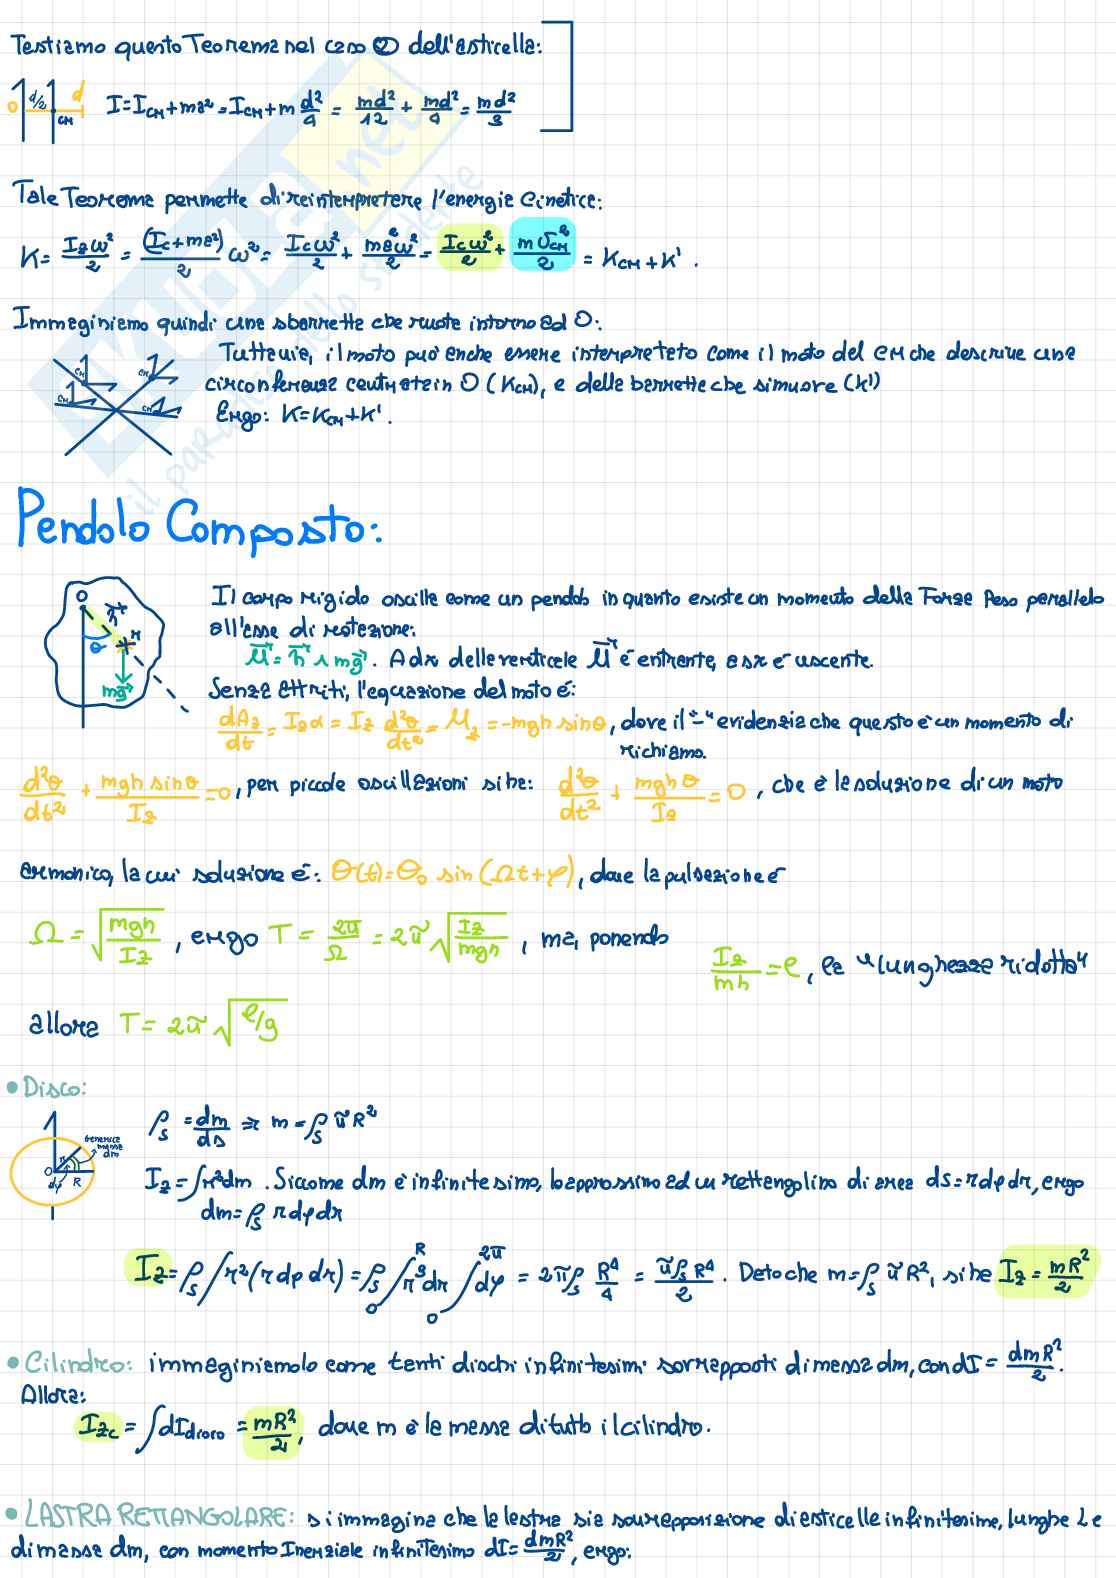 Testiamo questo Teorema nel caso ② dell'asticella:
O d/2 d CM I = I_CM + ma² = I_CM + m d²/4 = md²/12 + md²/4 = md²/3
Tale Teorema permette di reinterpretare l'energia cinetica:
K = I_z ω²/2 = (I_c + ma²)/2 ω² = I_c ω²/2 + ma²ω²/2 = I_c ω²/2 + m v_CM²/2 = K_CM + K'.
Immaginiamo quindi una sbarretta che ruota intorno ad O:
Tuttavia, il moto può anche essere interpretato come il moto del CM che descrive una
CM CM CM CM circonferenza centrata in O (K_CM), e della barretta che si muove (K')
Ergo: K = K_CM + K'.
Pendolo Composto:
Il corpo rigido oscilla come un pendolo in quanto esiste un momento della Forza Peso parallelo
all'asse di rotazione:
O h θ mg M = h ∧ mg. A dx della verticale M è entrante, a sx è uscente.
Senza attriti, l'equazione del moto è:
dA_z/dt = I_z α = I_z d²θ/dt² = M_z = -mgh sinθ, dove il "-" evidenzia che questo è un momento di
richiamo.
d²θ/dt² + mgh sinθ/I_z = 0, per piccole oscillazioni si ha: d²θ/dt² + mgh θ/I_z = 0, che è la soluzione di un moto
armonico, la cui soluzione è: θ(t) = θ₀ sin(Ωt + φ), dove la pulsazione è
Ω = √(mgh/I_z), ergo T = 2π/Ω = 2π √(I_z/mgh), ma, ponendo I_z/mh = ℓ, la "lunghezza ridotta"
allora T = 2π √(ℓ/g)
• Disco:
ρ_s = dm/ds ⇒ m = ρ_s πR²
O r dφ R generica massa dm
I_z = ∫r²dm. Siccome dm è infinitesimo, lo approssimo ad un rettangolino di area ds = r dφ dr, ergo
dm = ρ_s r dφ dr
I_z = ρ_s ∫r²(r dφ dr) = ρ_s ∫₀ᴿ r³dr ∫₀²π dφ = 2πρ_s R⁴/4 = πρ_s R⁴/2. Dato che m = ρ_s πR², si ha I_z = mR²/2
• Cilindro: immaginiamolo come tanti dischi infinitesimi sovrapposti di massa dm, con dI = dmR²/2.
Allora:
I_zc = ∫dI_disco = mR²/2, dove m è la massa di tutto il cilindro.
• LASTRA RETTANGOLARE: si immagina che la lastra sia sovrapposizione di asticelle infinitesime, lunghe L e
di massa dm, con momento Inerziale infinitesimo dI = dmR²/2, ergo: